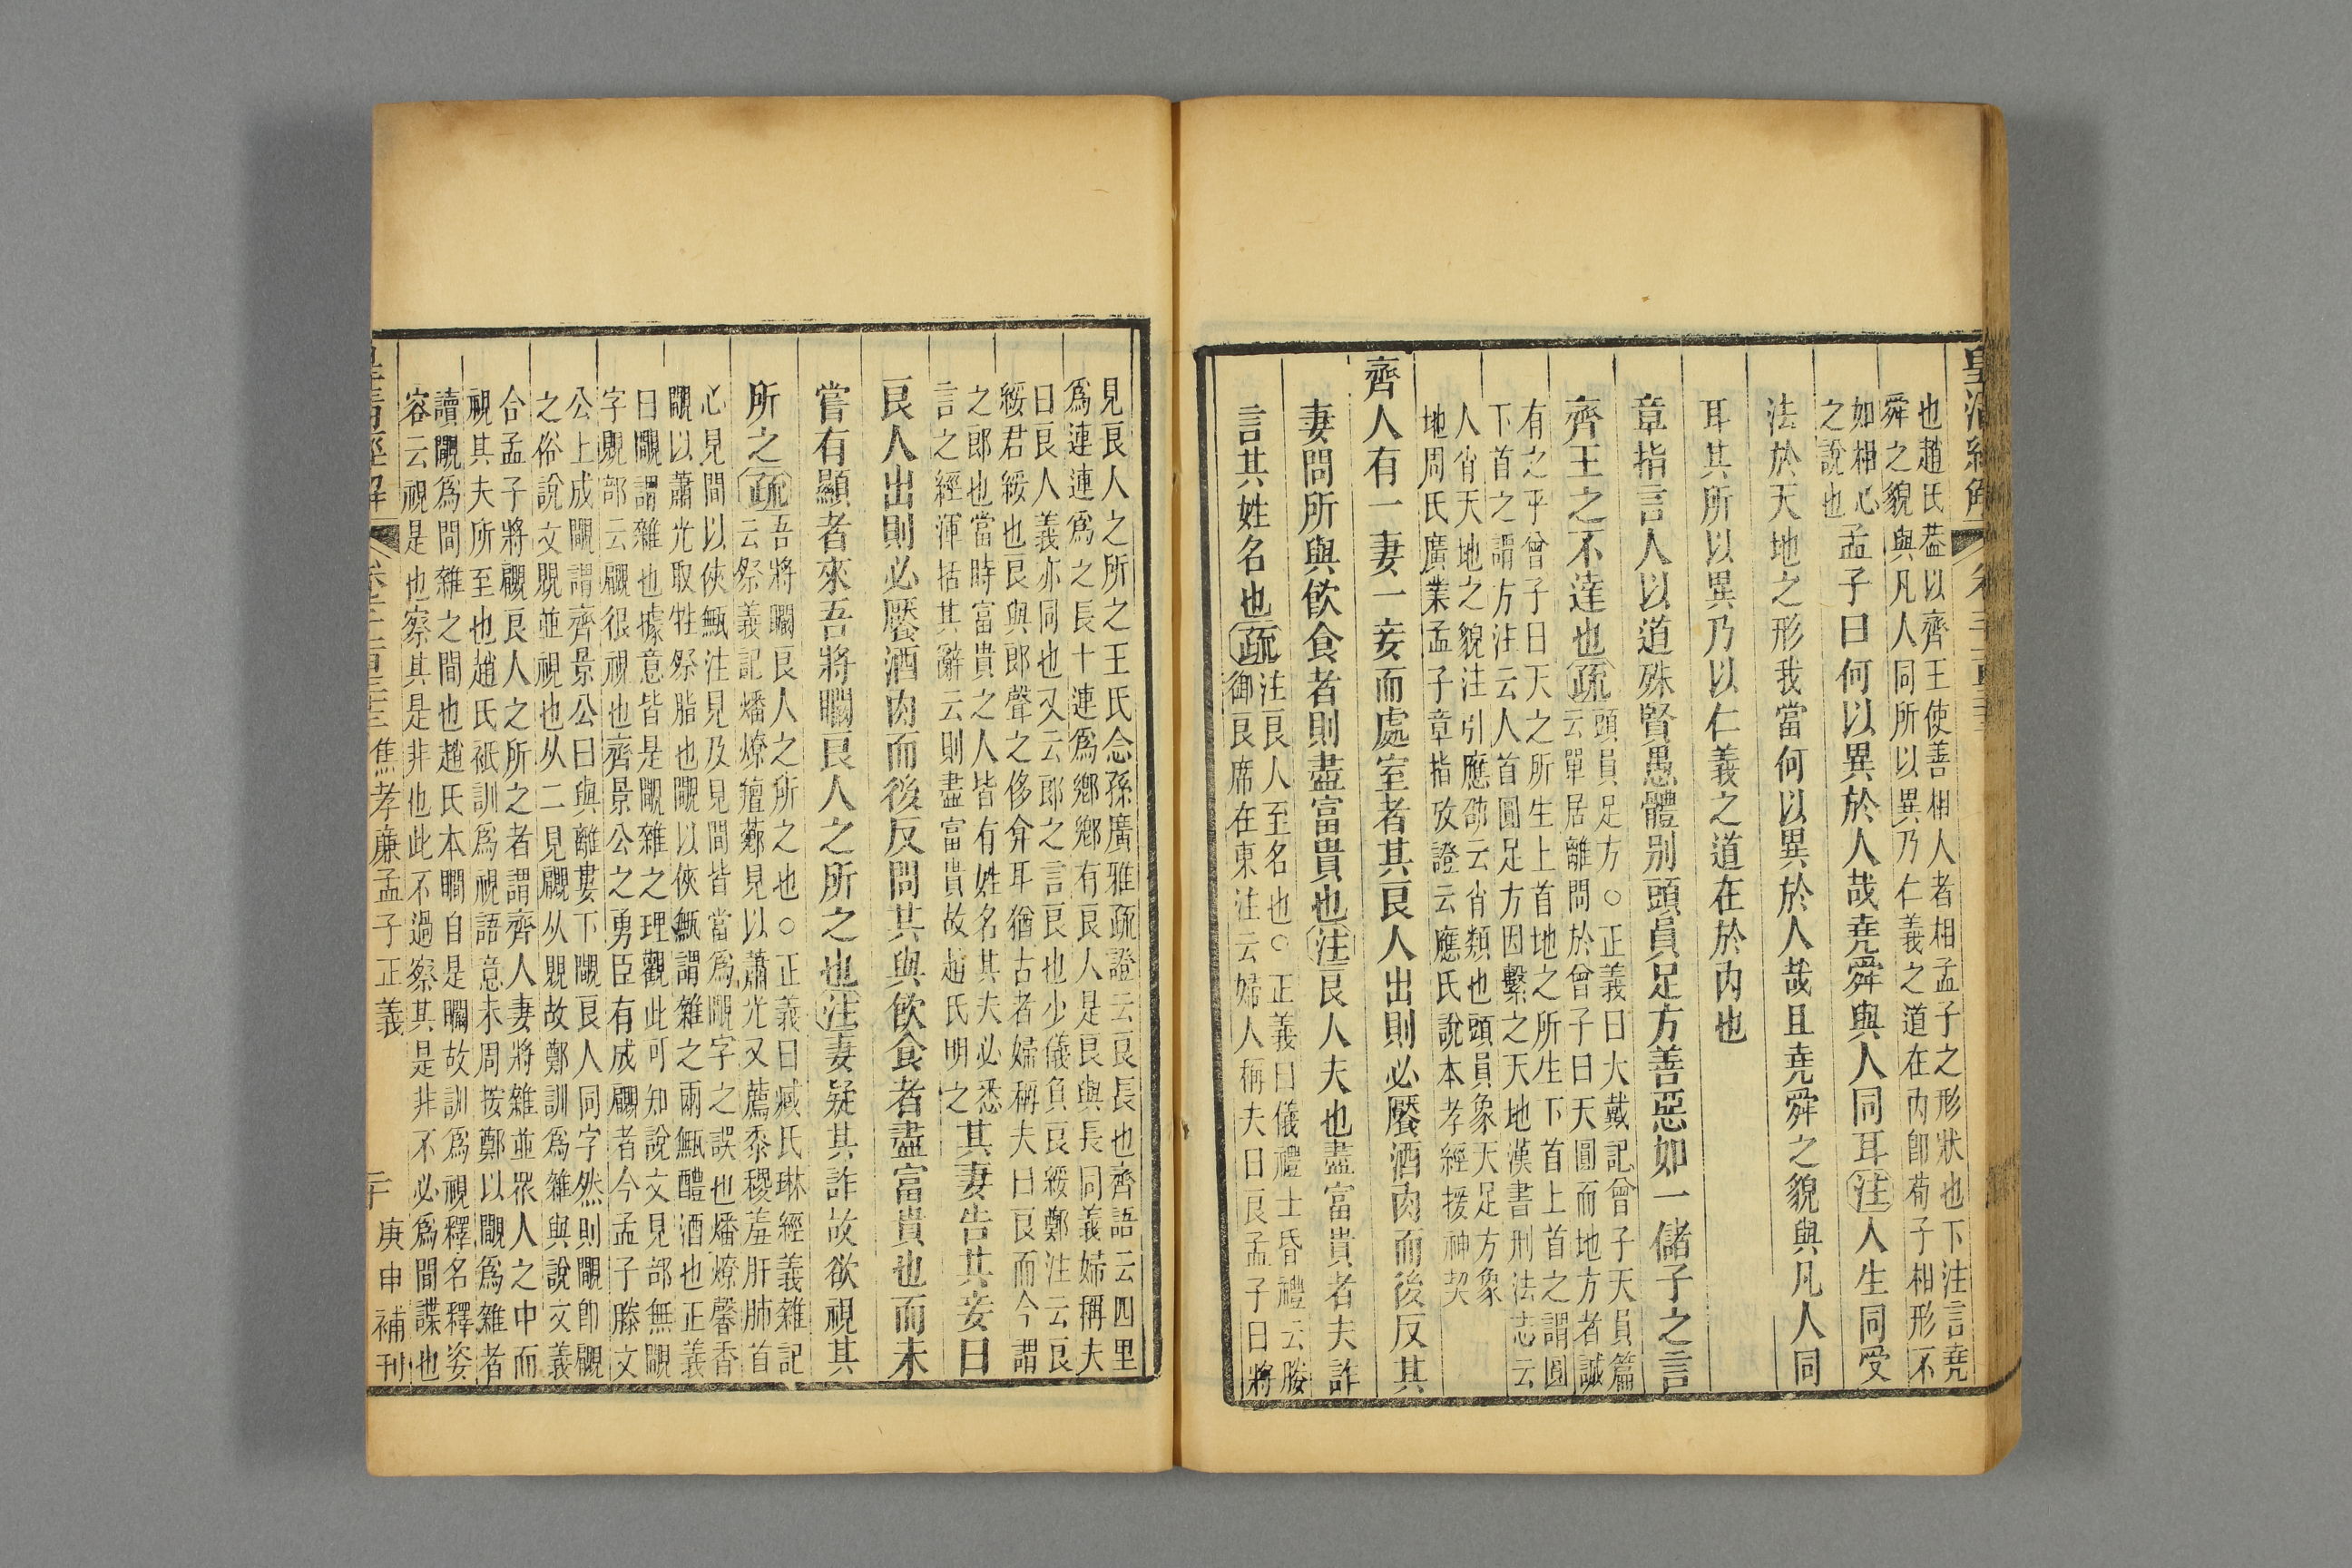 皇清經解
也趙氏葢以齊王使善相人者相孟子之形狀也下注言堯
舜之貌與凡人同所以異乃仁義之道在內卽荀子相形不
如相心
之說也
孟子曰何以異於人哉堯舜與人同耳注人生同受
法於天地之形我當何以異於人哉且堯舜之貌與凡人同
耳其所以異乃以仁義之道在於內也
章指言人以道殊賢愚體别頭員足方善惡如一儲子之言
齊王之不達也疏
頭員足方○正義曰大戴記曾子天員篇
云單居離問於曾子曰天圓而地方者誠
有之乎曾子曰天之所生上首地之所生下首上首之謂圓
下首之謂方注云人首圓足方因繫之天地漢書刑法志云
人肖天地之貌注引應劭云肖類也頭員象天足方象
地周氏廣業孟子章指攷證云應氏說本孝經援神契
齊人有一妻一妾而處室者其良人出則必饜酒肉而後反其
妻問所與飲食者則盡富貴也注良人夫也盡富貴者夫詐
言其姓名也疏
注良人至名也○正義曰儀禮士昏禮云媵
御良席在東注云婦人稱夫曰良孟子曰將
見良人之所之王氏念孫廣雅疏證云良長也齊語云四里
爲連連爲之長十連爲鄉鄉有良人是良與長同義婦稱夫
曰良人義亦同也又云郎之言良也少儀負良綏鄭注云良
綏君綏也良與郎聲之侈弇耳猶古者婦稱夫曰良而今謂
之郎也當時富貴之人皆有姓名其夫必悉
言之經渾括其辭云則盡富貴故趙氏明之
其妻告其妾曰
良人出則必饜酒肉而後反問其與飲食者盡富貴也而未
嘗有顯者來吾將瞯良人之所之也注妻疑其詐故欲視其
所之疏
吾將瞯良人之所之也○正義曰臧氏琳經義雜記
云祭義記燔燎羶薌見以蕭光又薦黍稷羞肝肺首
心見間以俠甒注見及見間皆當爲覸字之誤也燔燎馨香
覸以蕭光取牲祭脂也覸以俠甒謂雜之兩甒醴酒也正義
曰覸謂雜也據意皆是覸雜之理觀此可知說文見部無覸
字覞部云覵很視也齊景公之勇臣有成覵者今孟子滕文
公上成覸謂齊景公曰與離婁下覸良人同字然則覸卽覵
之俗說文覞並視也从二見見覵从覞故鄭訓爲雜與說文義
合孟子將覵良人之所之者謂齊人妻將雜並眾人之中而
視其夫所至也趙氏衹訓爲視語意未周按鄭以覸爲雜者
讀覸爲間雜之間也趙氏本瞷自是瞯故訓爲視釋名釋姿
容云視是也察其是非也此不過察其是非不必爲間諜也
焦孝廉孟子正義
庚申補刊